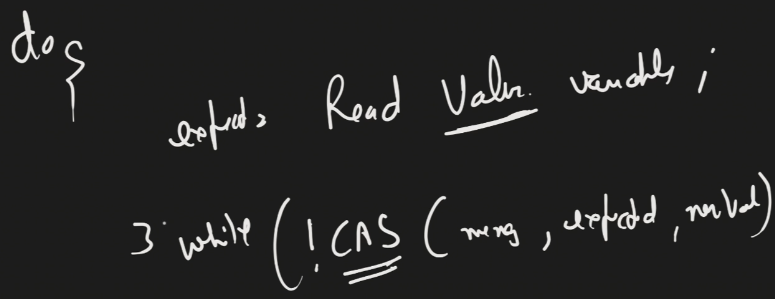 do {
expected = Read Value variable ;
} while ( ! CAS ( mem , expected , newVal )